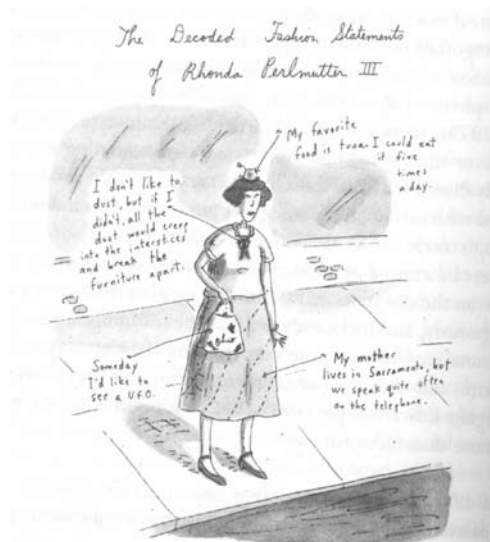 The Decoded Fashion Statements
of Rhonda Perlmutter III
My favorite
food is tuna. I could eat
it five
times
a day.
I don't like to
dust, but if I
didn't, all the
dust would creep
into the interstices
and break the
furniture apart.
Ohio
Someday
I'd like to
see a U.F.O.
My mother
lives in Sacramento, but
we speak quite often
on the telephone.